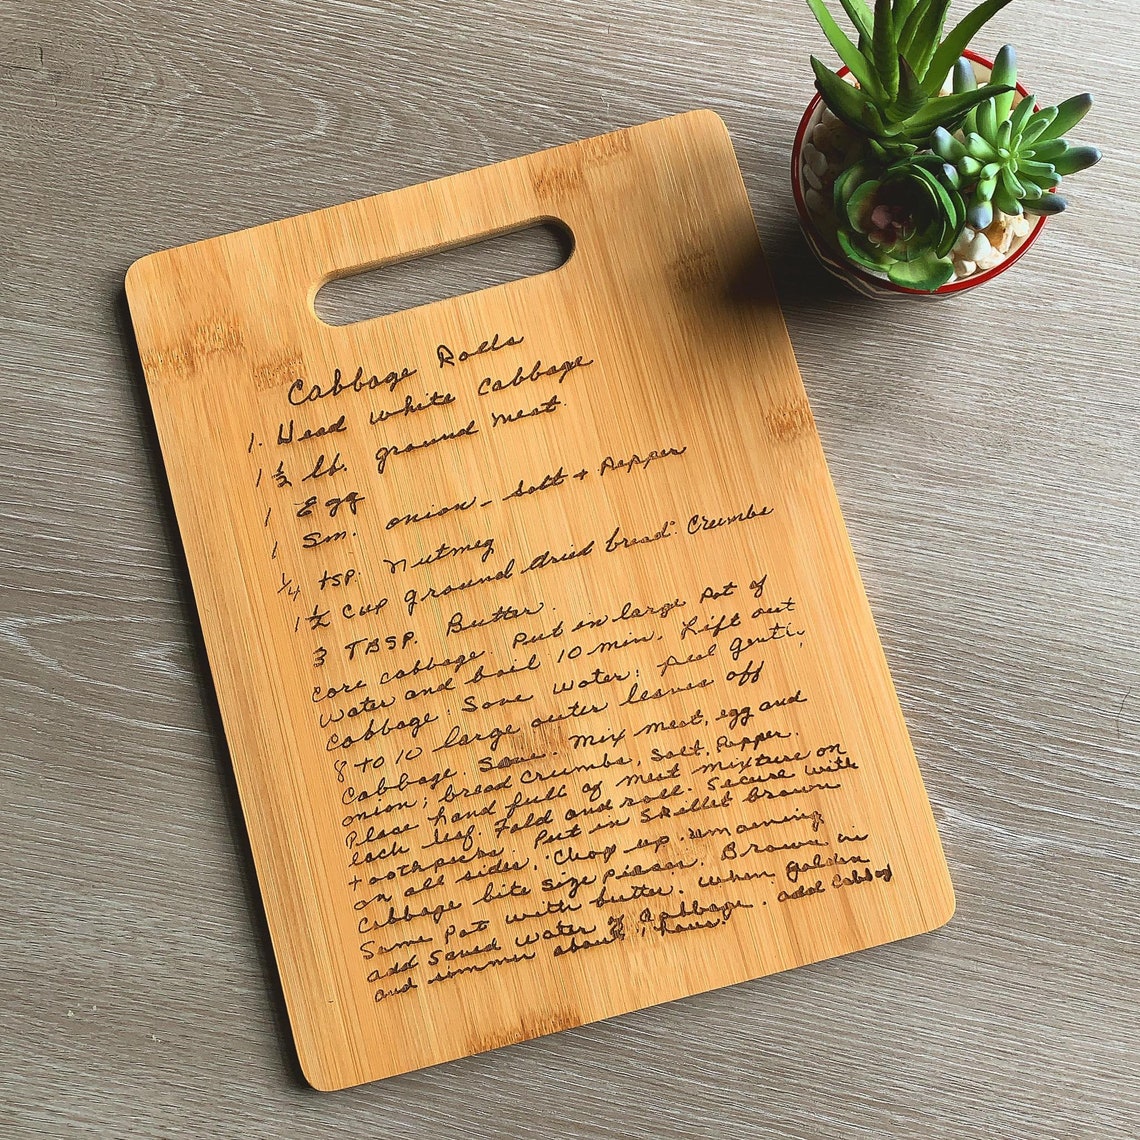 Cabbage Rolls
1. Head white cabbage
1 ½ lb. ground meat.
1 Egg
1 Sm. onion - Salt + Pepper
¼ tsp. Nutmeg
1 ½ cup ground dried bread crumbs
3 TBSP. Butter.
core cabbage. Put in large pot of
water and boil 10 min. Lift out
cabbage. Save water. Peal gently,
8 to 10 large outer leaves off
cabbage. Save. Mix meat, egg and
onion, bread crumbs, Salt, Pepper.
Place hand full of meat mixture on
each leaf. Fold and roll. Secure with
toothpicks. Put in Skillet brown
on all sides. Chop up remaining
cabbage bite size pieces. Brown in
Same pot with butter. When golden
add Saved water of Cabbage. add cabbag
and simmer about 1 hour.